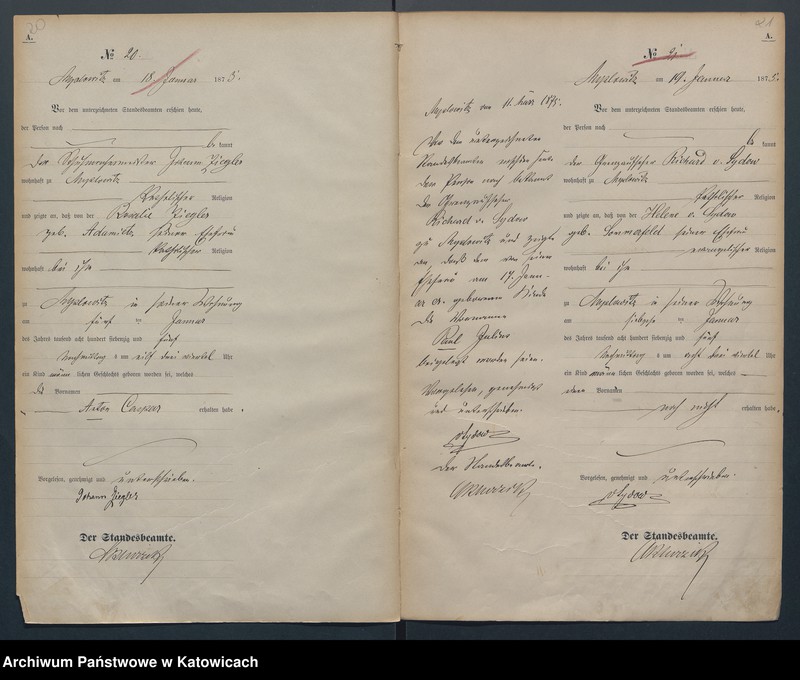 20
A.
№ 20.
Myslowitz am 18. Januar 1875.
Vor dem unterzeichneten Standesbeamten erschien heute,
der Person nach
be kannt
der Schuhmachermeister Johann Ziegler
wohnhaft zu Myslowitz
katholischer Religion
und zeigte an, daß von der Rosalie Ziegler
geb. Adamietz seiner Ehefrau
katholischer Religion
wohnhaft bei ihm
zu Myslowitz in seiner Wohnung
am fünf ten Januar
des Jahres tausend acht hundert siebenzig und fünf
Vormittag s um elf drei viertel Uhr
ein Kind männ lichen Geschlechts geboren worden sei, welches
die Vornamen
Anton Caspar erhalten habe.
Vorgelesen, genehmigt und unterschrieben.
Johann Ziegler
Der Standesbeamte.
21
A.
№ 21.
Myslowitz am 19. Januar 1875.
Vor dem unterzeichneten Standesbeamten erschien heute,
der Person nach
be kannt
der Grenzaufseher Richard v. Sydow
wohnhaft zu Myslowitz
katholischer Religion
und zeigte an, daß von der Helene v. Sydow
geb. Sonnenfeld seiner Ehefrau
evangelischer Religion
wohnhaft bei ihm
zu Myslowitz in seiner Wohnung
am siebzehn ten Januar
des Jahres tausend acht hundert siebenzig und fünf
Nachmittag s um acht drei viertel Uhr
ein Kind männ lichen Geschlechts geboren worden sei, welches
einen Vornamen
noch nicht erhalten habe.
Vorgelesen, genehmigt und unterschrieben.
v Sydow
Der Standesbeamte.
Myslowitz am 11. März 1875.
Vor dem unterzeichneten
Standesbeamten erschien heute
dem Person nach bekannt
der Grenzaufseher
Richard v. Sydow
zu Myslowitz und zeigte
an, daß dem von seiner
Ehefrau am 17. Janu-
ar cr. geborenen Kinde
die Vornamen
Paul Julius
beigelegt worden seien.
Vorgelesen, genehmigt
und unterschrieben.
v Sydow
Der Standesbeamte.
Archiwum Państwowe w Katowicach